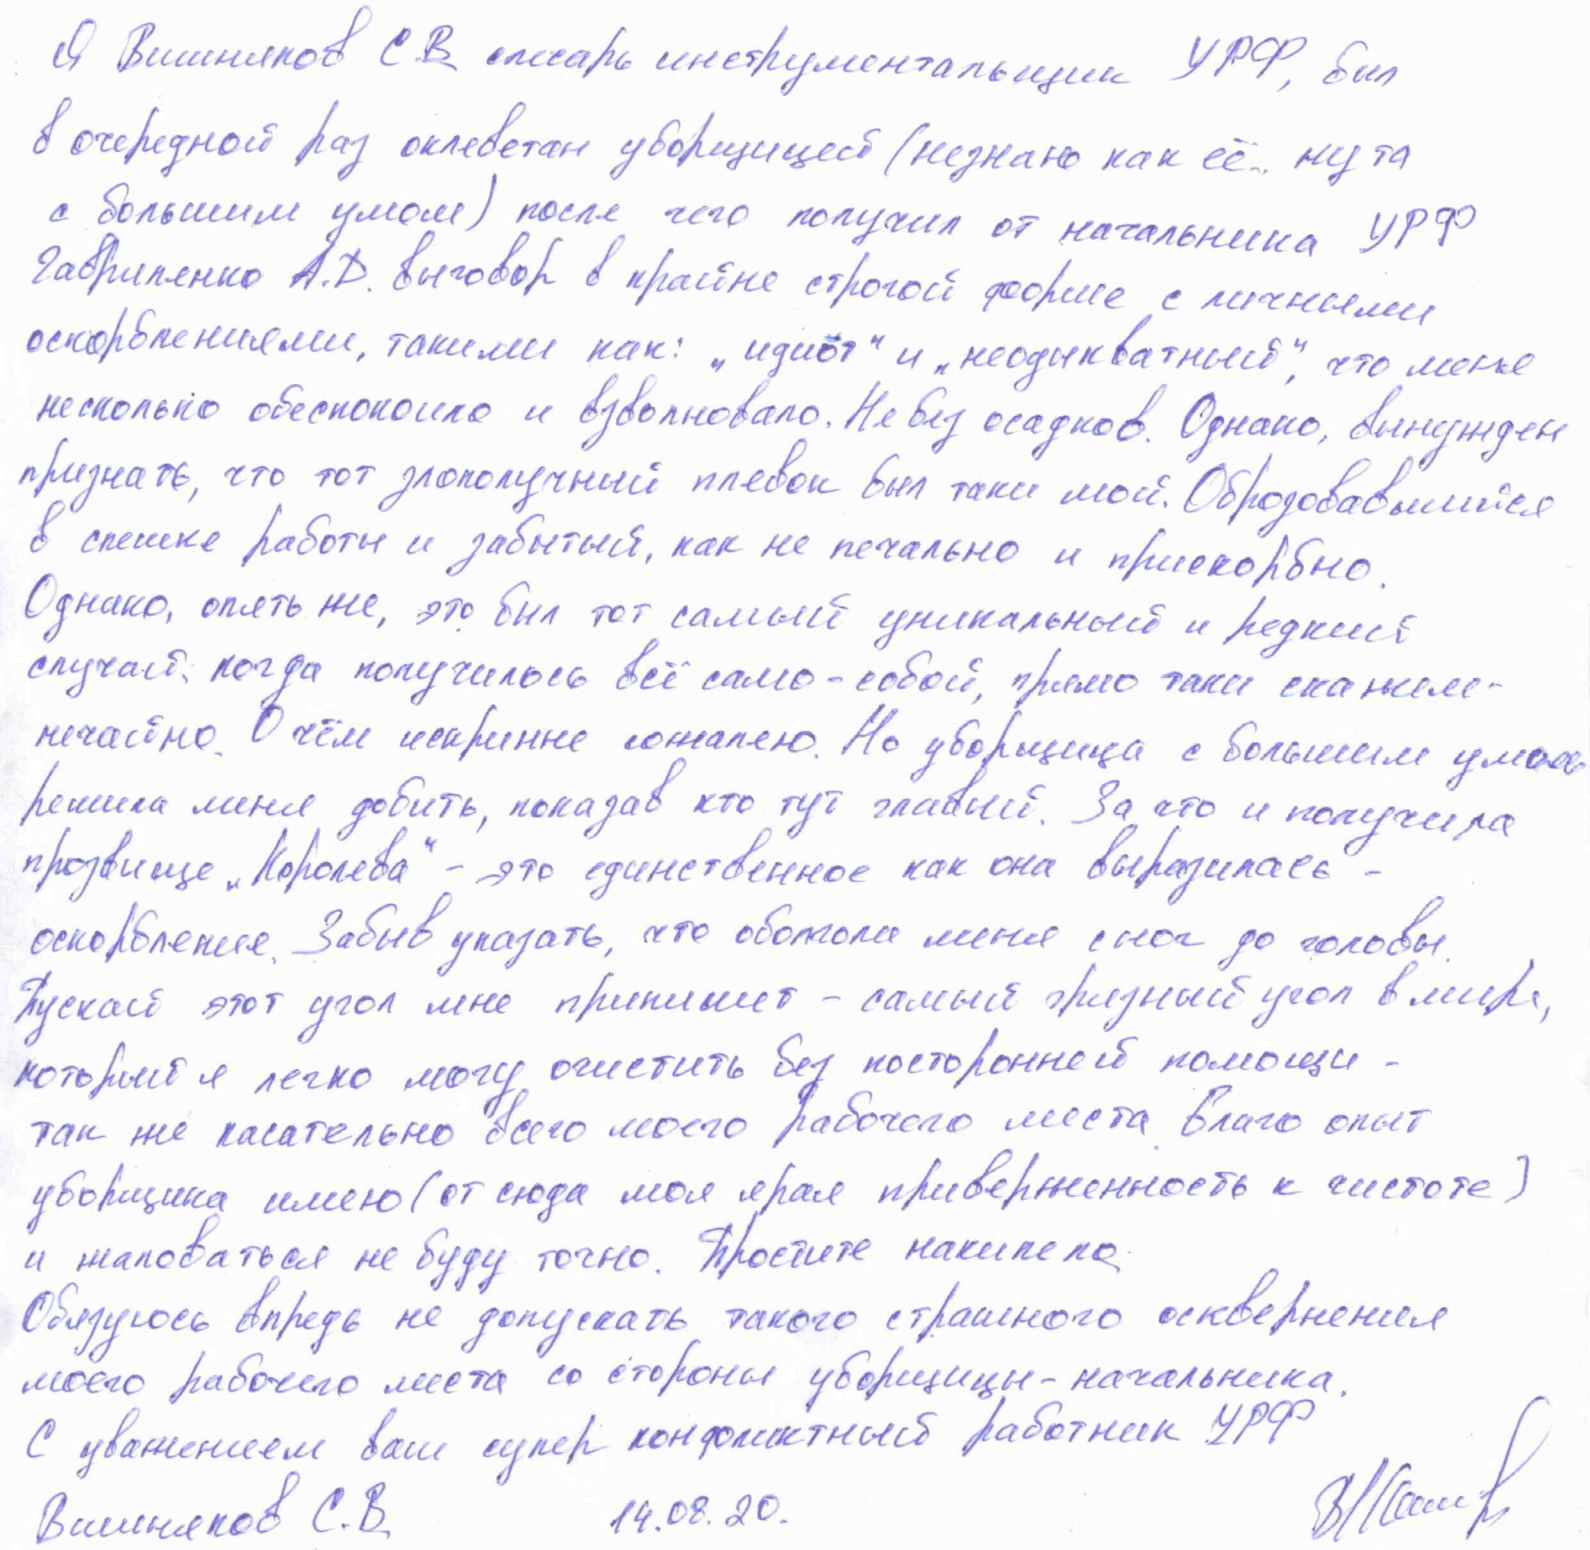 Я Вишняков С.В. слесарь инструментальщик УРФ, был
в очередной раз оклеветан уборщицей (незнаю как её.. ну та
с большим умом) после чего получил от начальника УРФ
Гавриленко А.Д. выговор в крайне строгой форме с личными
оскорблениями, такими как: „идиот" и „неодыкватный", что меня
несколько обеспокоило и взволновало. Не без осадков. Однако, вынужден
признать, что тот злополучный плевок был таки мой. Оброзовавшийся
в спешке работы и забытый, как не печально и прискорбно.
Однако, опять же, это был тот самый уникальный и редкий
случай, когда получилось всё само-собой, прямо таки скажем-
нечайно. О чём искринне сожалею. Но уборщица с большим умом
решила меня добить, показав кто тут главный. За что и получила
прозвище „Королева" - это единственное как она выразилась -
оскорбление. Забыв указать, что оболгола меня с ног до головы.
Пускай этот угол мне припишет - самый грязный угол в мире,
который я легко могу очистить без посторонней помощи -
так же касательно всего моего рабочего места. Благо опыт
уборщика имею (от сюда моя ярая приверженность к чистоте)
и жаловаться не буду точно. Простите накипело.
Обязуюсь впредь не допускать такого страшного осквернения
моего рабочего места со стороны уборщицы-начальника.
С уважением ваш супер конфликтный работник УРФ
Вишняков С.В. 14.08.20.